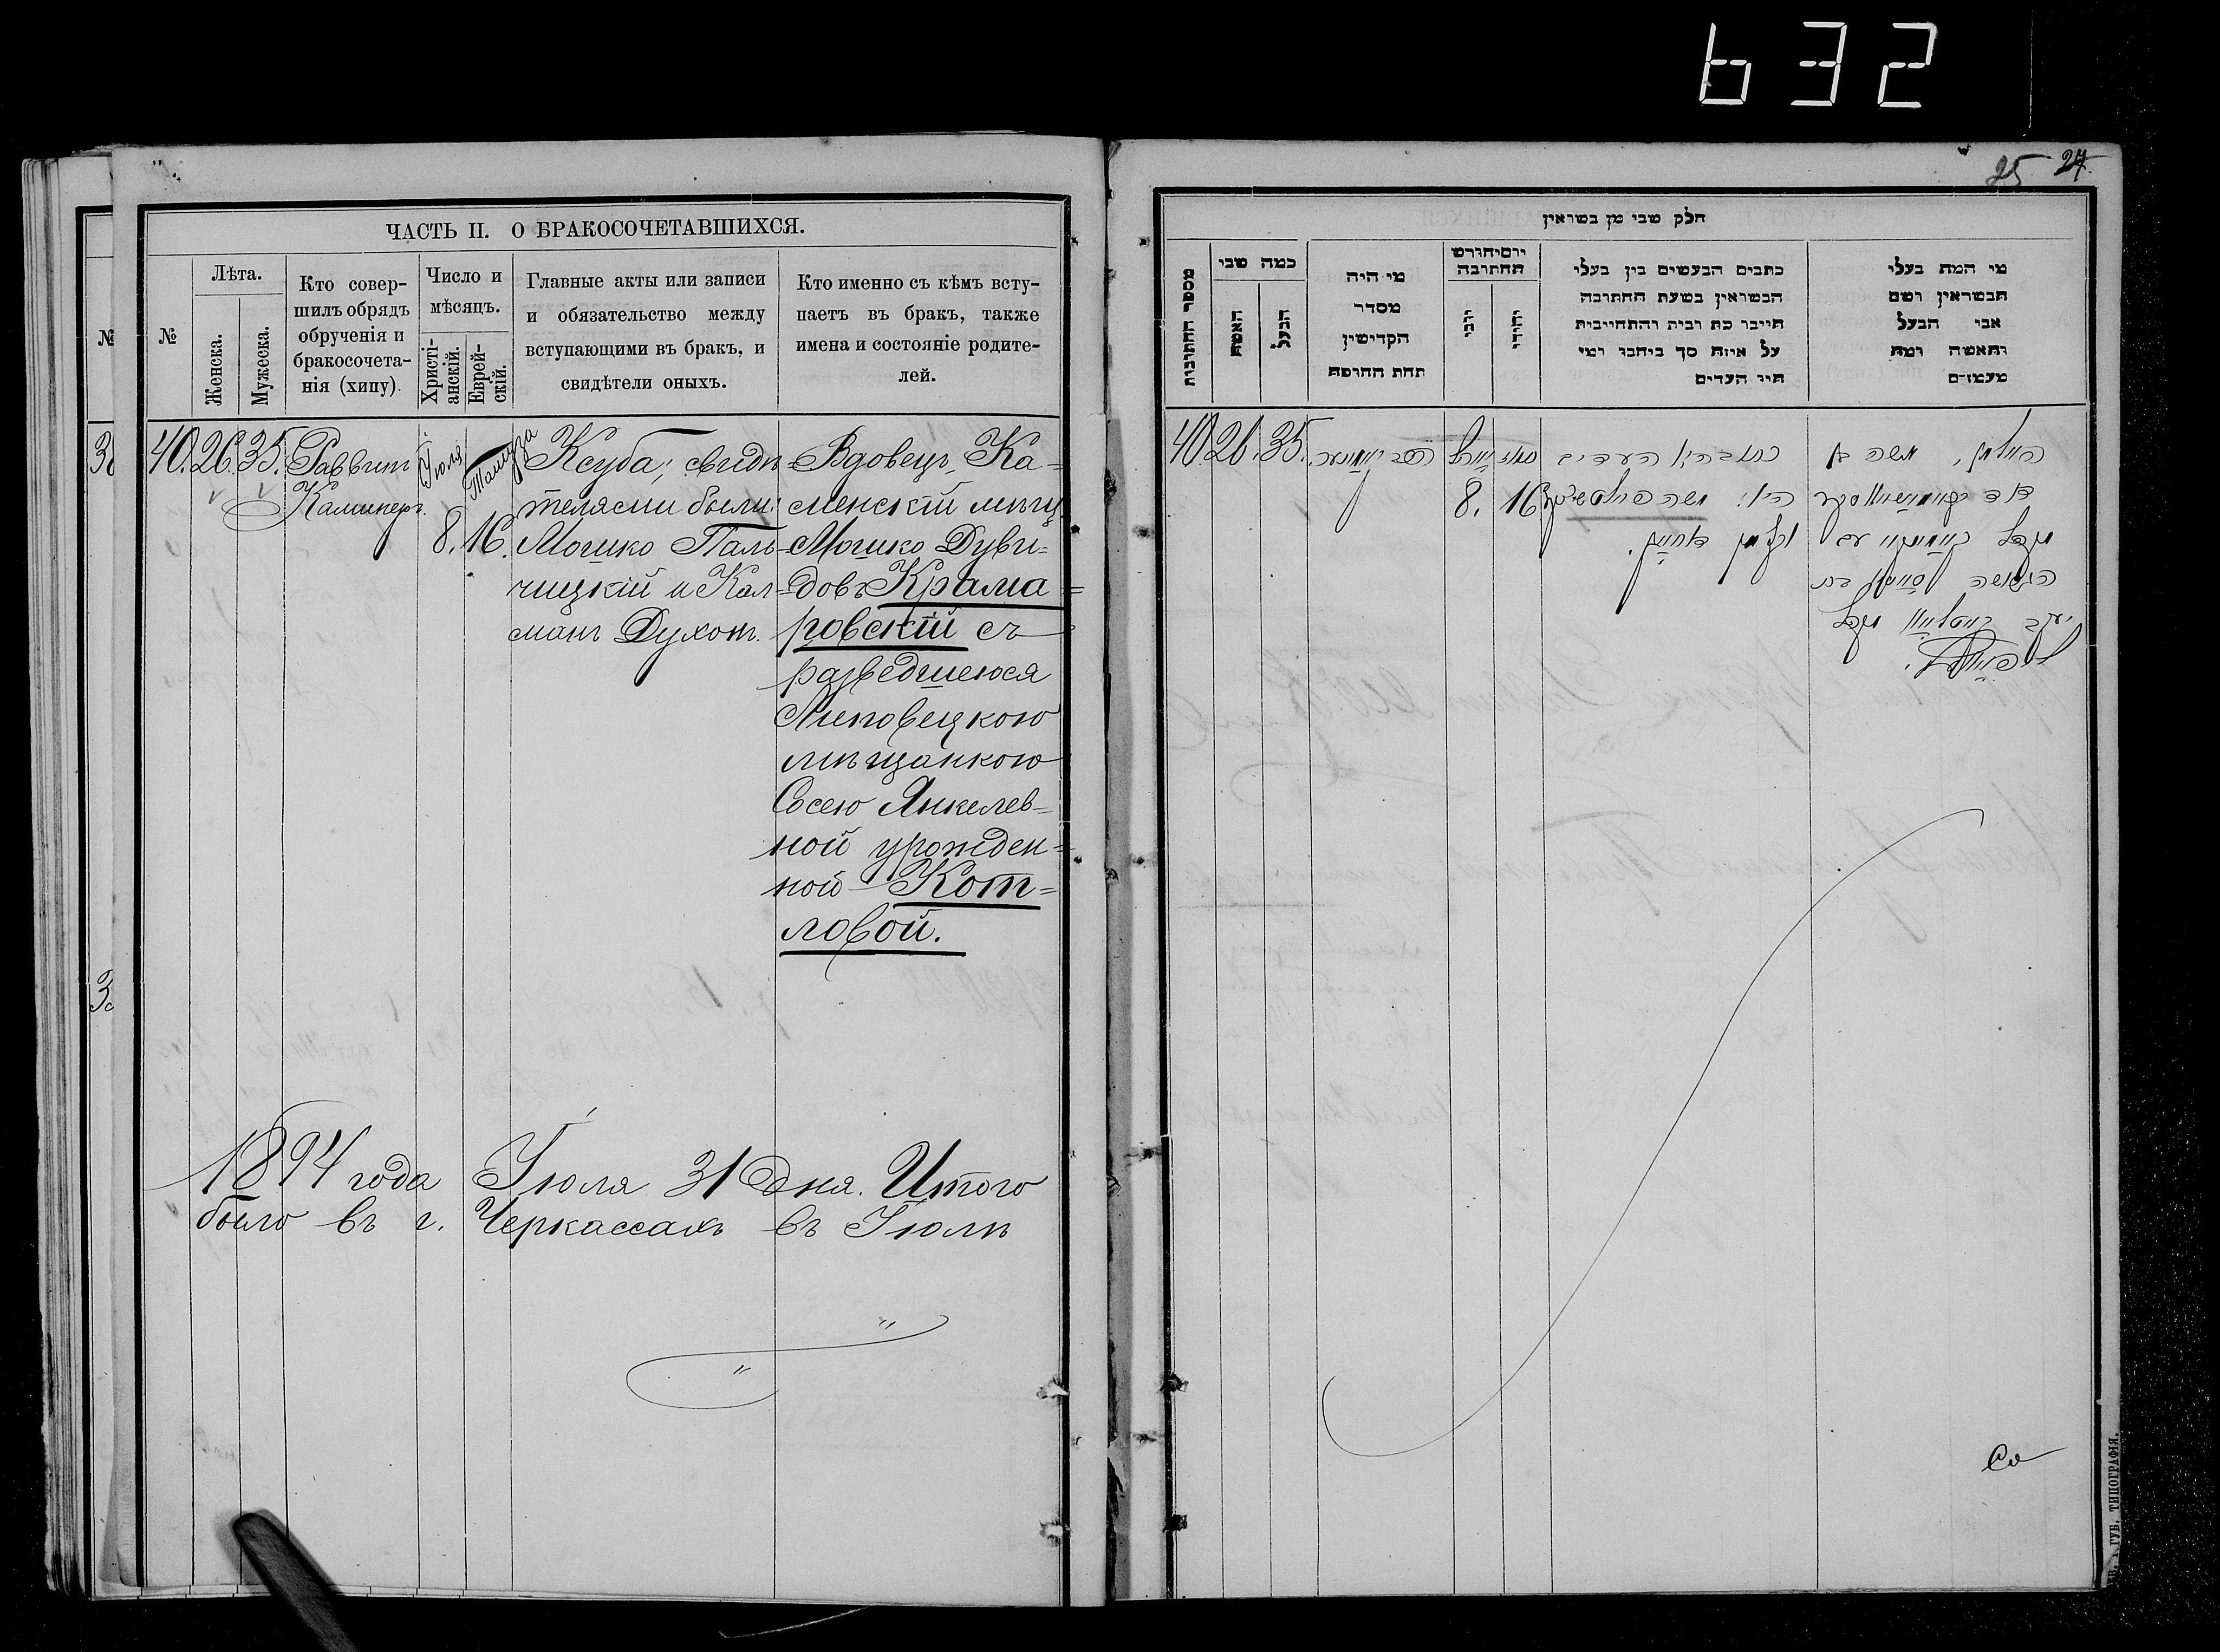 632
ЧАСТЬ II. О БРАКОСОЧЕТАВШИХСЯ.
№
№
Лѣта.
Женска.
Мужеска.
Кто совер-
шилъ обрядъ
обрученія и
бракосочета-
нія (хипу).
Число и
мѣсяцъ.
Христі-
анскій.
Еврей-
скій.
Главные акты или записи
и обязательство между
вступающими въ бракъ, и
свидѣтели оныхъ.
Кто именно съ кѣмъ всту-
паетъ въ бракъ, также
имена и состояніе родите-
лей.
40. 26. 35.
Раввинъ
Каминеръ.
Іюля
8.
Тамуза
16.
Ксуба; свидѣ-
телями были:
Мошко Паль-
чицкій и Кал-
манъ Духот.
Вдовецъ, Ка-
менскій мѣщ.
Мошко Дуви-
довъ Крама-
ровскій съ
разведшеюся
Липовецкою
мѣщанкою
Сосею Янкелев-
ной урожден-
ной Кот-
ловой.
1894 года Іюля 31 дня. Итого
было въ г. Черкассахъ въ Іюлѣ
25 27
חלק שני מן נשואין
מספר החתונות
כמה שני
האשה
הבעל
מי היה
מסדר
הקדישין
תחת החופה
יום וחודש
החתונה
יוני
יהודי
כתבים הנעשים בין בעלי
הנשואין בשעת החתונה
חייבו כת ובית והתחייבות
על איזה סך ביחבו ומי
היו העדים
מי המה בעלי
הנשואין ושם
אבי הבעל
והאשה ומה
מעמדם
40. 26. 35.
8.
16
כתובה, העדים
היו: משה
האלמן, משה ב
דוד
הגרושה בת
יעקב
ГУБ. ТИПОГРАФІЯ.